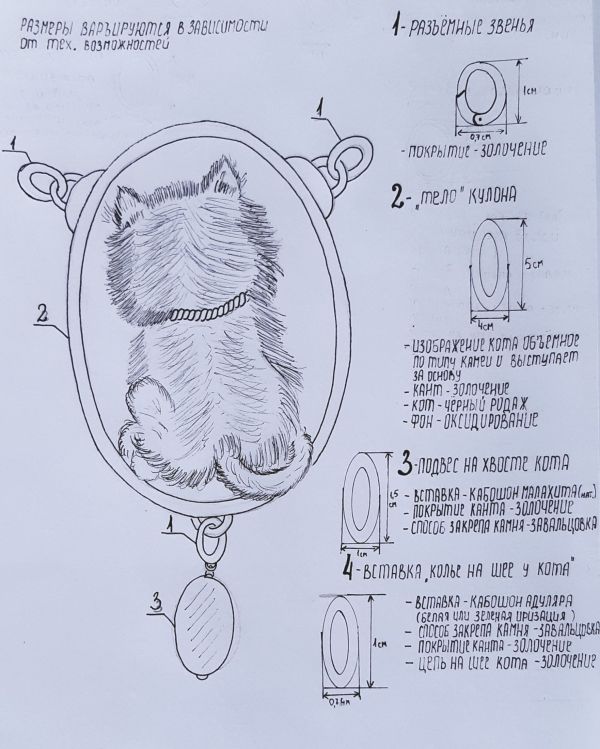 РАЗМЕРЫ ВАРЪИРУЮТСЯ В ЗАВИСИМОСТИ
ОТ ТЕХ. ВОЗМОЖНОСТЕЙ
1 - РАЗЪЁМНЫЕ ЗВЕНЬЯ
1см
0,7см
- ПОКРЫТИЕ - ЗОЛОЧЕНИЕ
1
1
2 - „ТЕЛО" КУЛОНА
5см
4см
2
- ИЗОБРАЖЕНИЕ КОТА ОБЪЁМНОЕ
ПО ТИПУ КАМЕИ И ВЫСТУПАЕТ
ЗА ОСНОВУ
- КАНТ - ЗОЛОЧЕНИЕ
- КОТ - ЧЕРНЫЙ РОДАЖ
- ФОН - ОКСИДИРОВАНИЕ
3 - ПОДВЕС НА ХВОСТЕ КОТА
1,5
см
1см
- ВСТАВКА - КАБОШОН МАЛАХИТА (нат.)
- ПОКРЫТИЕ КАНТА - ЗОЛОЧЕНИЕ
- СПОСОБ ЗАКРЕПА КАМНЯ - ЗАВАЛЬЦОВКА
1
3
4 - ВСТАВКА „КОЛЬЕ НА ШЕЕ У КОТА"
1см
- ВСТАВКА - КАБОШОН АДУЛЯРА
(БЕЛАЯ ИЛИ ЗЕЛЕНАЯ ИРИЗАЦИЯ)
- СПОСОБ ЗАКРЕПА КАМНЯ - ЗАВАЛЬЦОВКА
- ПОКРЫТИЕ КАНТА - ЗОЛОЧЕНИЕ
- ЦЕПЬ НА ШЕЕ КОТА - ЗОЛОЧЕНИЕ